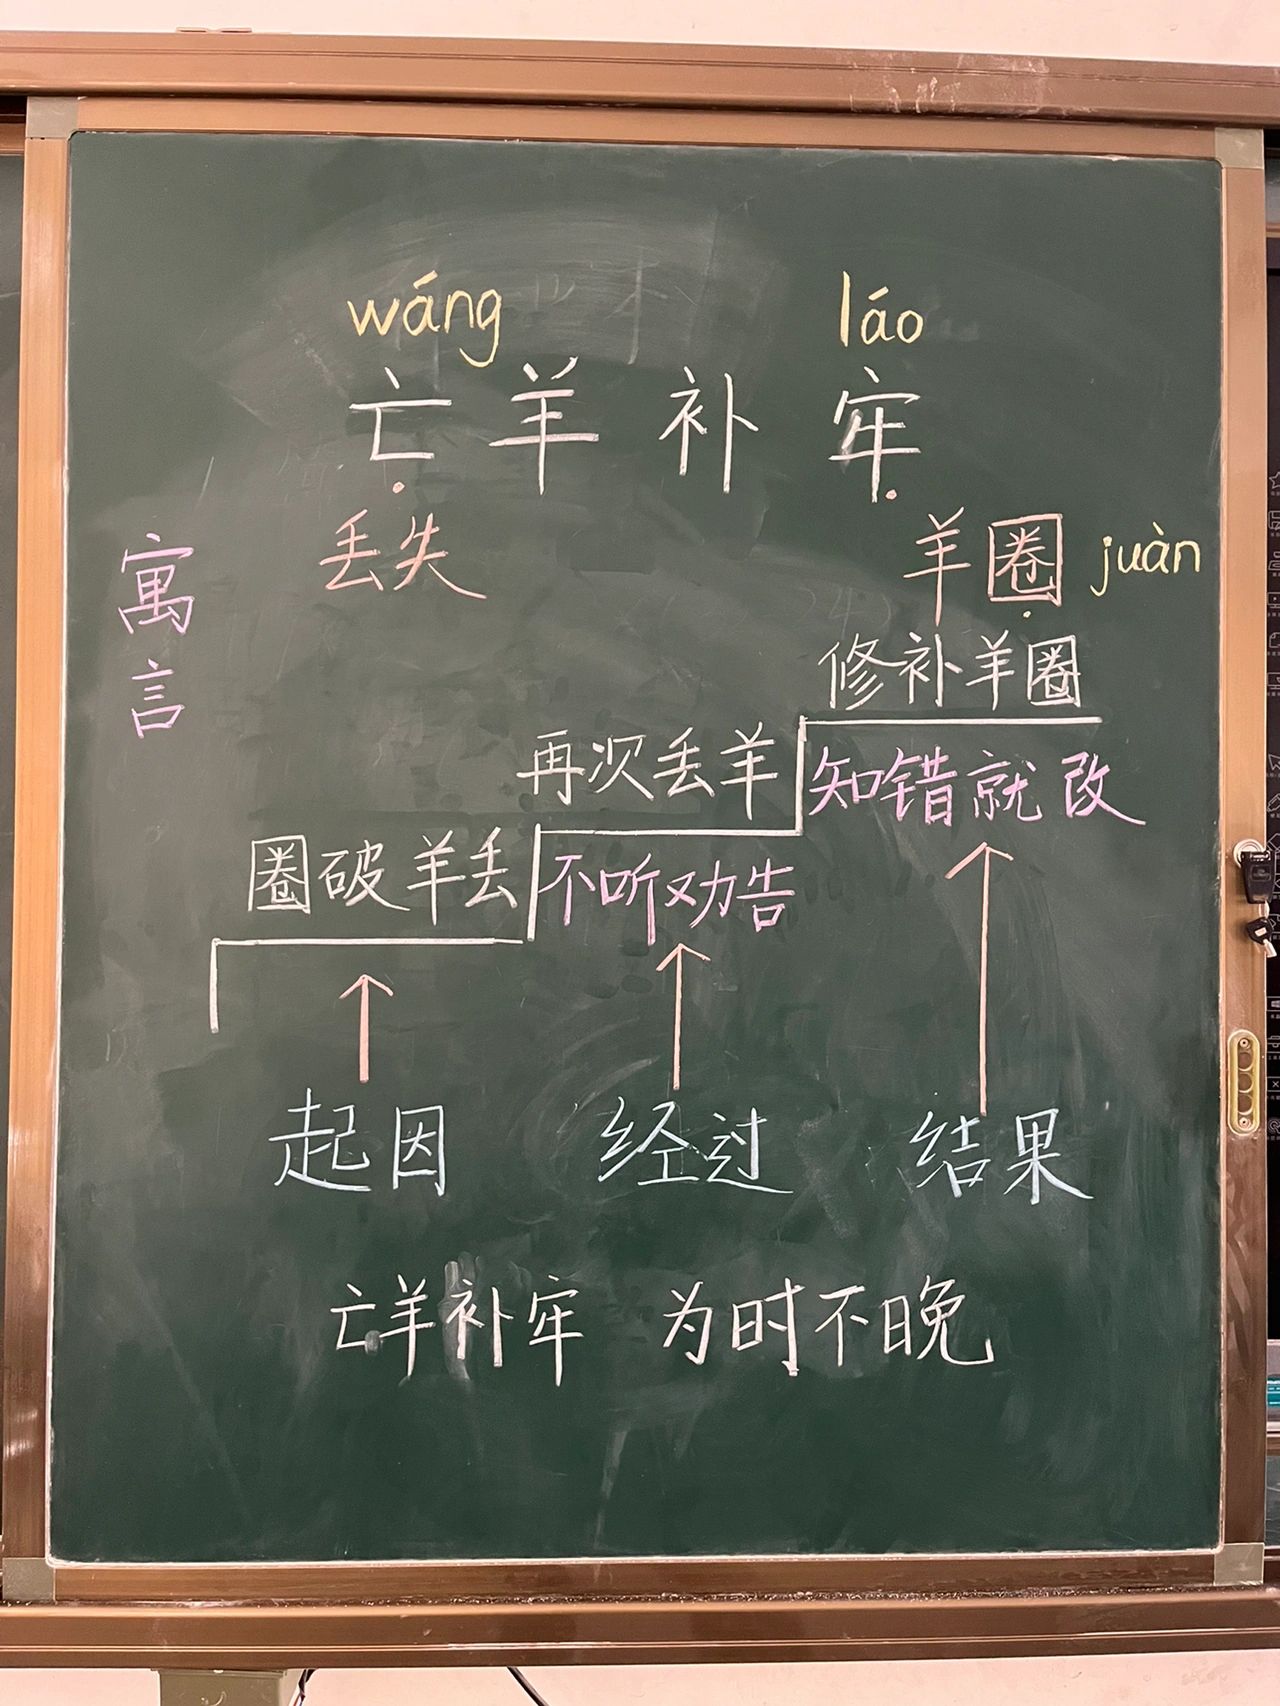 wáng láo
亡羊补牢
丢失
羊圈 juàn
寓言
修补羊圈
再次丢羊
知错就改
圈破羊丢
不听劝告
起因 经过 结果
亡羊补牢 为时不晚